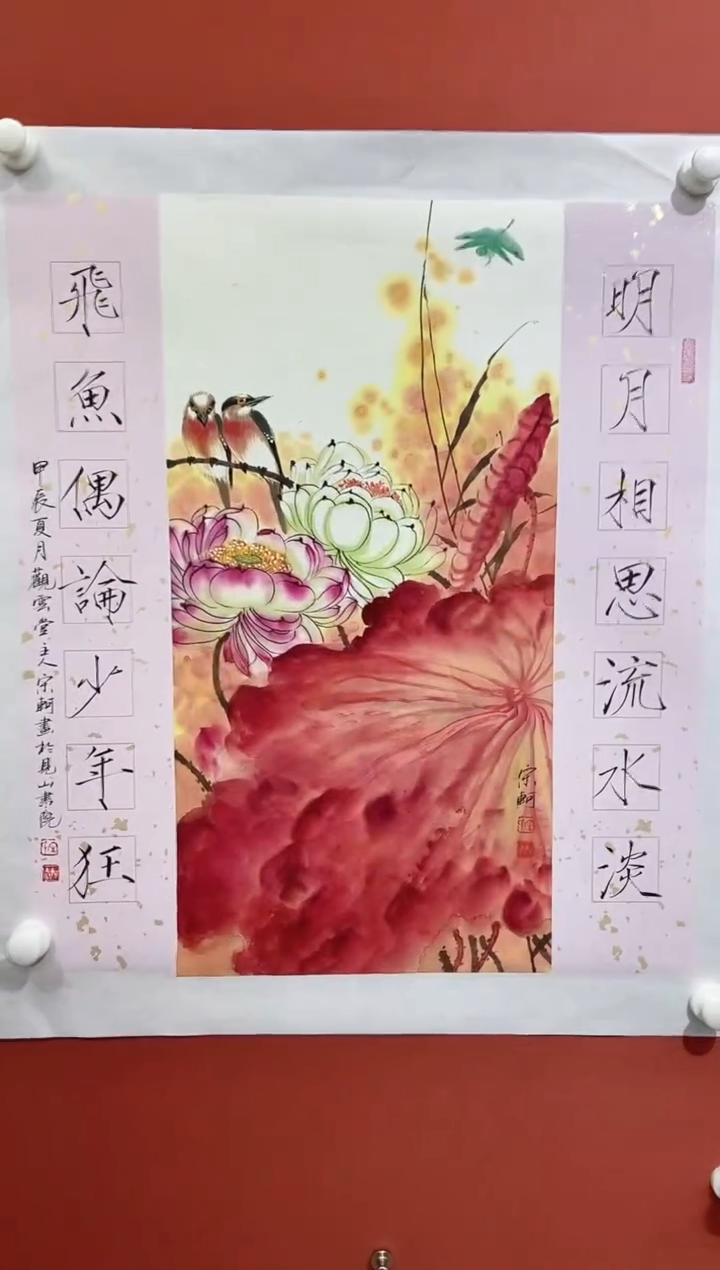 明月相思流水淡
飛魚偶論少年狂
甲辰夏月觀雲堂主人宗軻畫於見山書院
宗軻